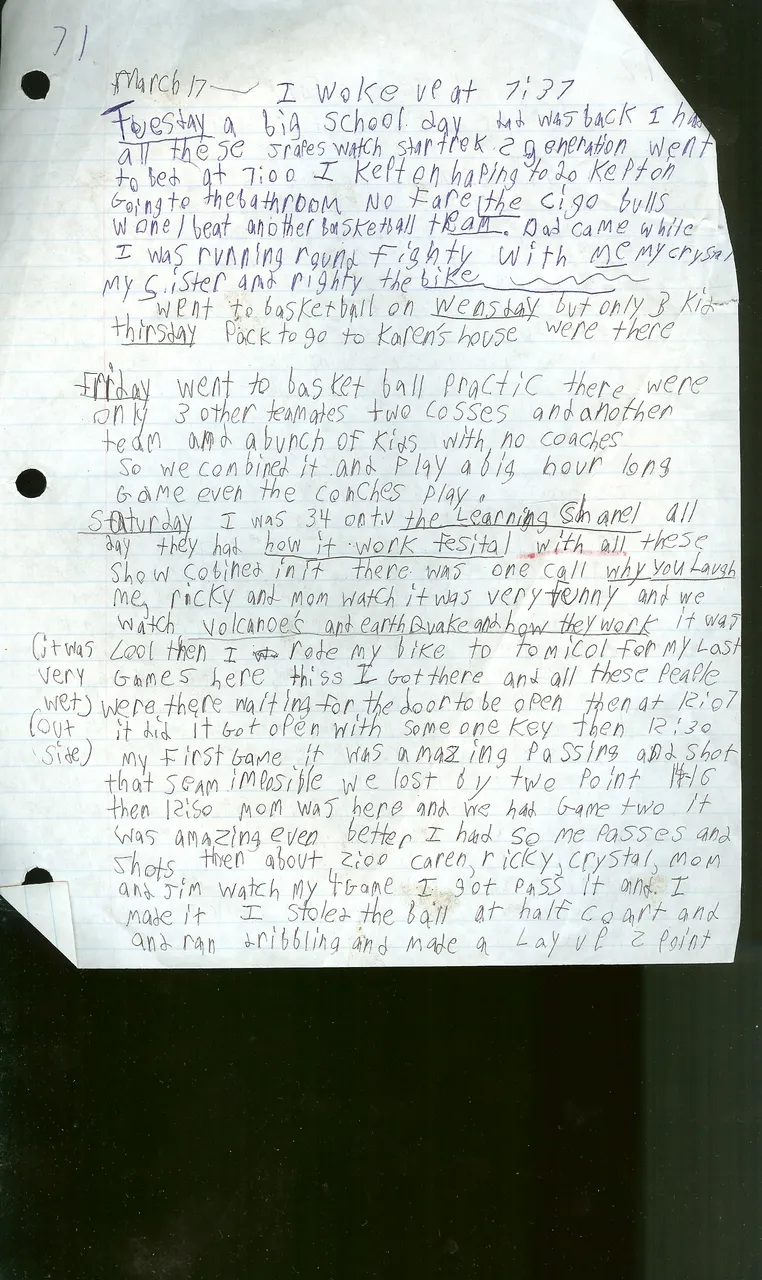 71
March 17 I woke up at 7:37
Tuesday a big school day dad was back I had
all these grapes watch startrek 2 generation went
to bed at 7:00 I kept en haping to go kept on
going to the bathroom No Fare the cigo bulls
wone/beat another basketball team. Dad came while
I was running round fighty with me my crystal
my sister and righty the bike
went to basketball on Wensday but only 3 kid
thirsday Pack to go to Karen's house were there
Friday went to basket ball practic there were
only 3 other teamates two cosses and another
team and a bunch of kids with no coaches
So we combined it and play a big hour long
Game even the conches play.
Saturday I was 34 on t.v the Learning Shanel all
day they had how it work fesital with all these
show cobined in it there was one call why you Laugh
me, ricky and mom watch it was very fenny and we
watch volcanoe's and earth Quake and how they work it was
(it was Lool then I rode my bike to tomicol for my Last
very Games here thiss I Got there and all these people
wet) were there waiting for the door to be open then at 12:07
(out it did it Got open with some one key then 12:30
side) my First Game it was amazing passing and shot
that seam imposible we lost by two point 14-16
then 12:50 mom was here and we had Game two it
was amazing even better I had some passes and
shots then about 2:00 caren, ricky, crystal, mom
and Jim watch my 4 Game I got pass it and I
made it I stoled the ball at half coart and
and ran dribbling and made a Lay up 2 Point